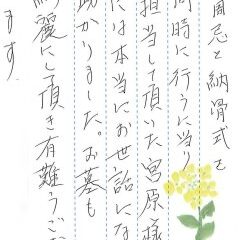 周忌と納骨式を
同時に行うに当り
担当して頂いた宮原様
には本当にお世話にな
助かりました。お墓も
綺麗にして頂き有難うござ
ます